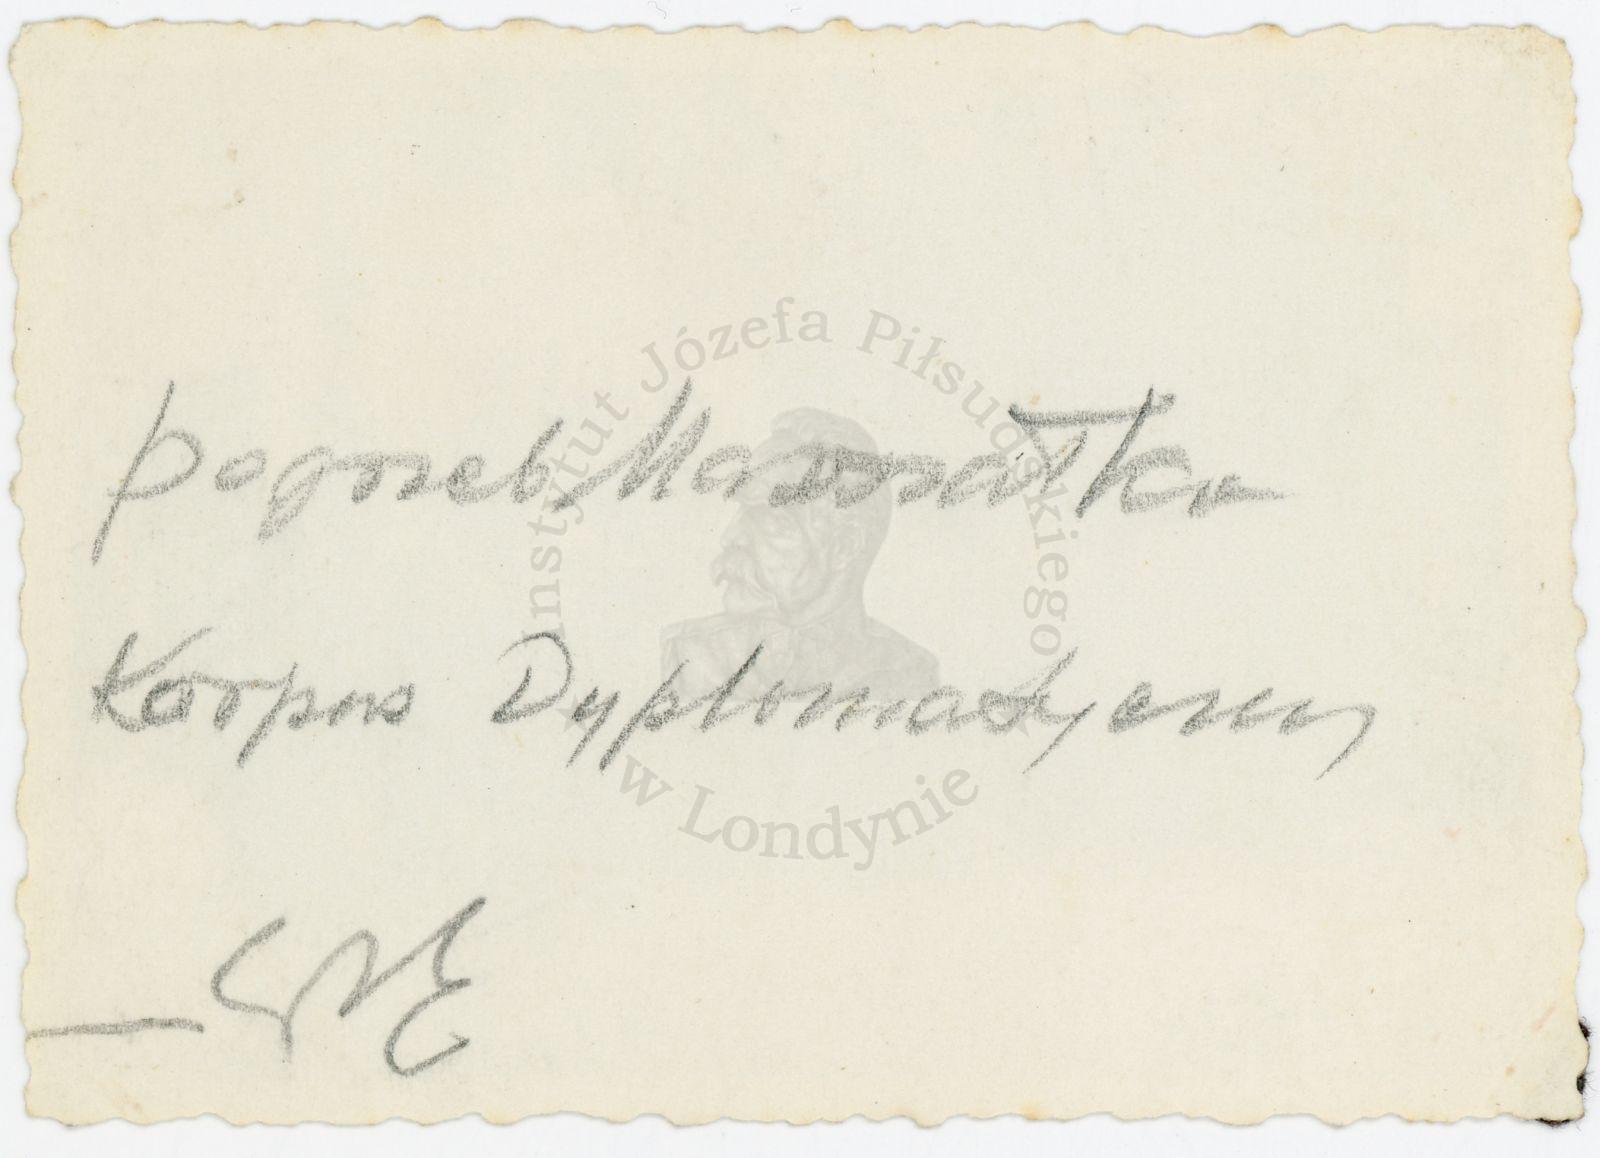 pogrzeb Marszałka
Korpus Dyplomatyczny
Instytut Józefa Piłsudskiego
w Londynie